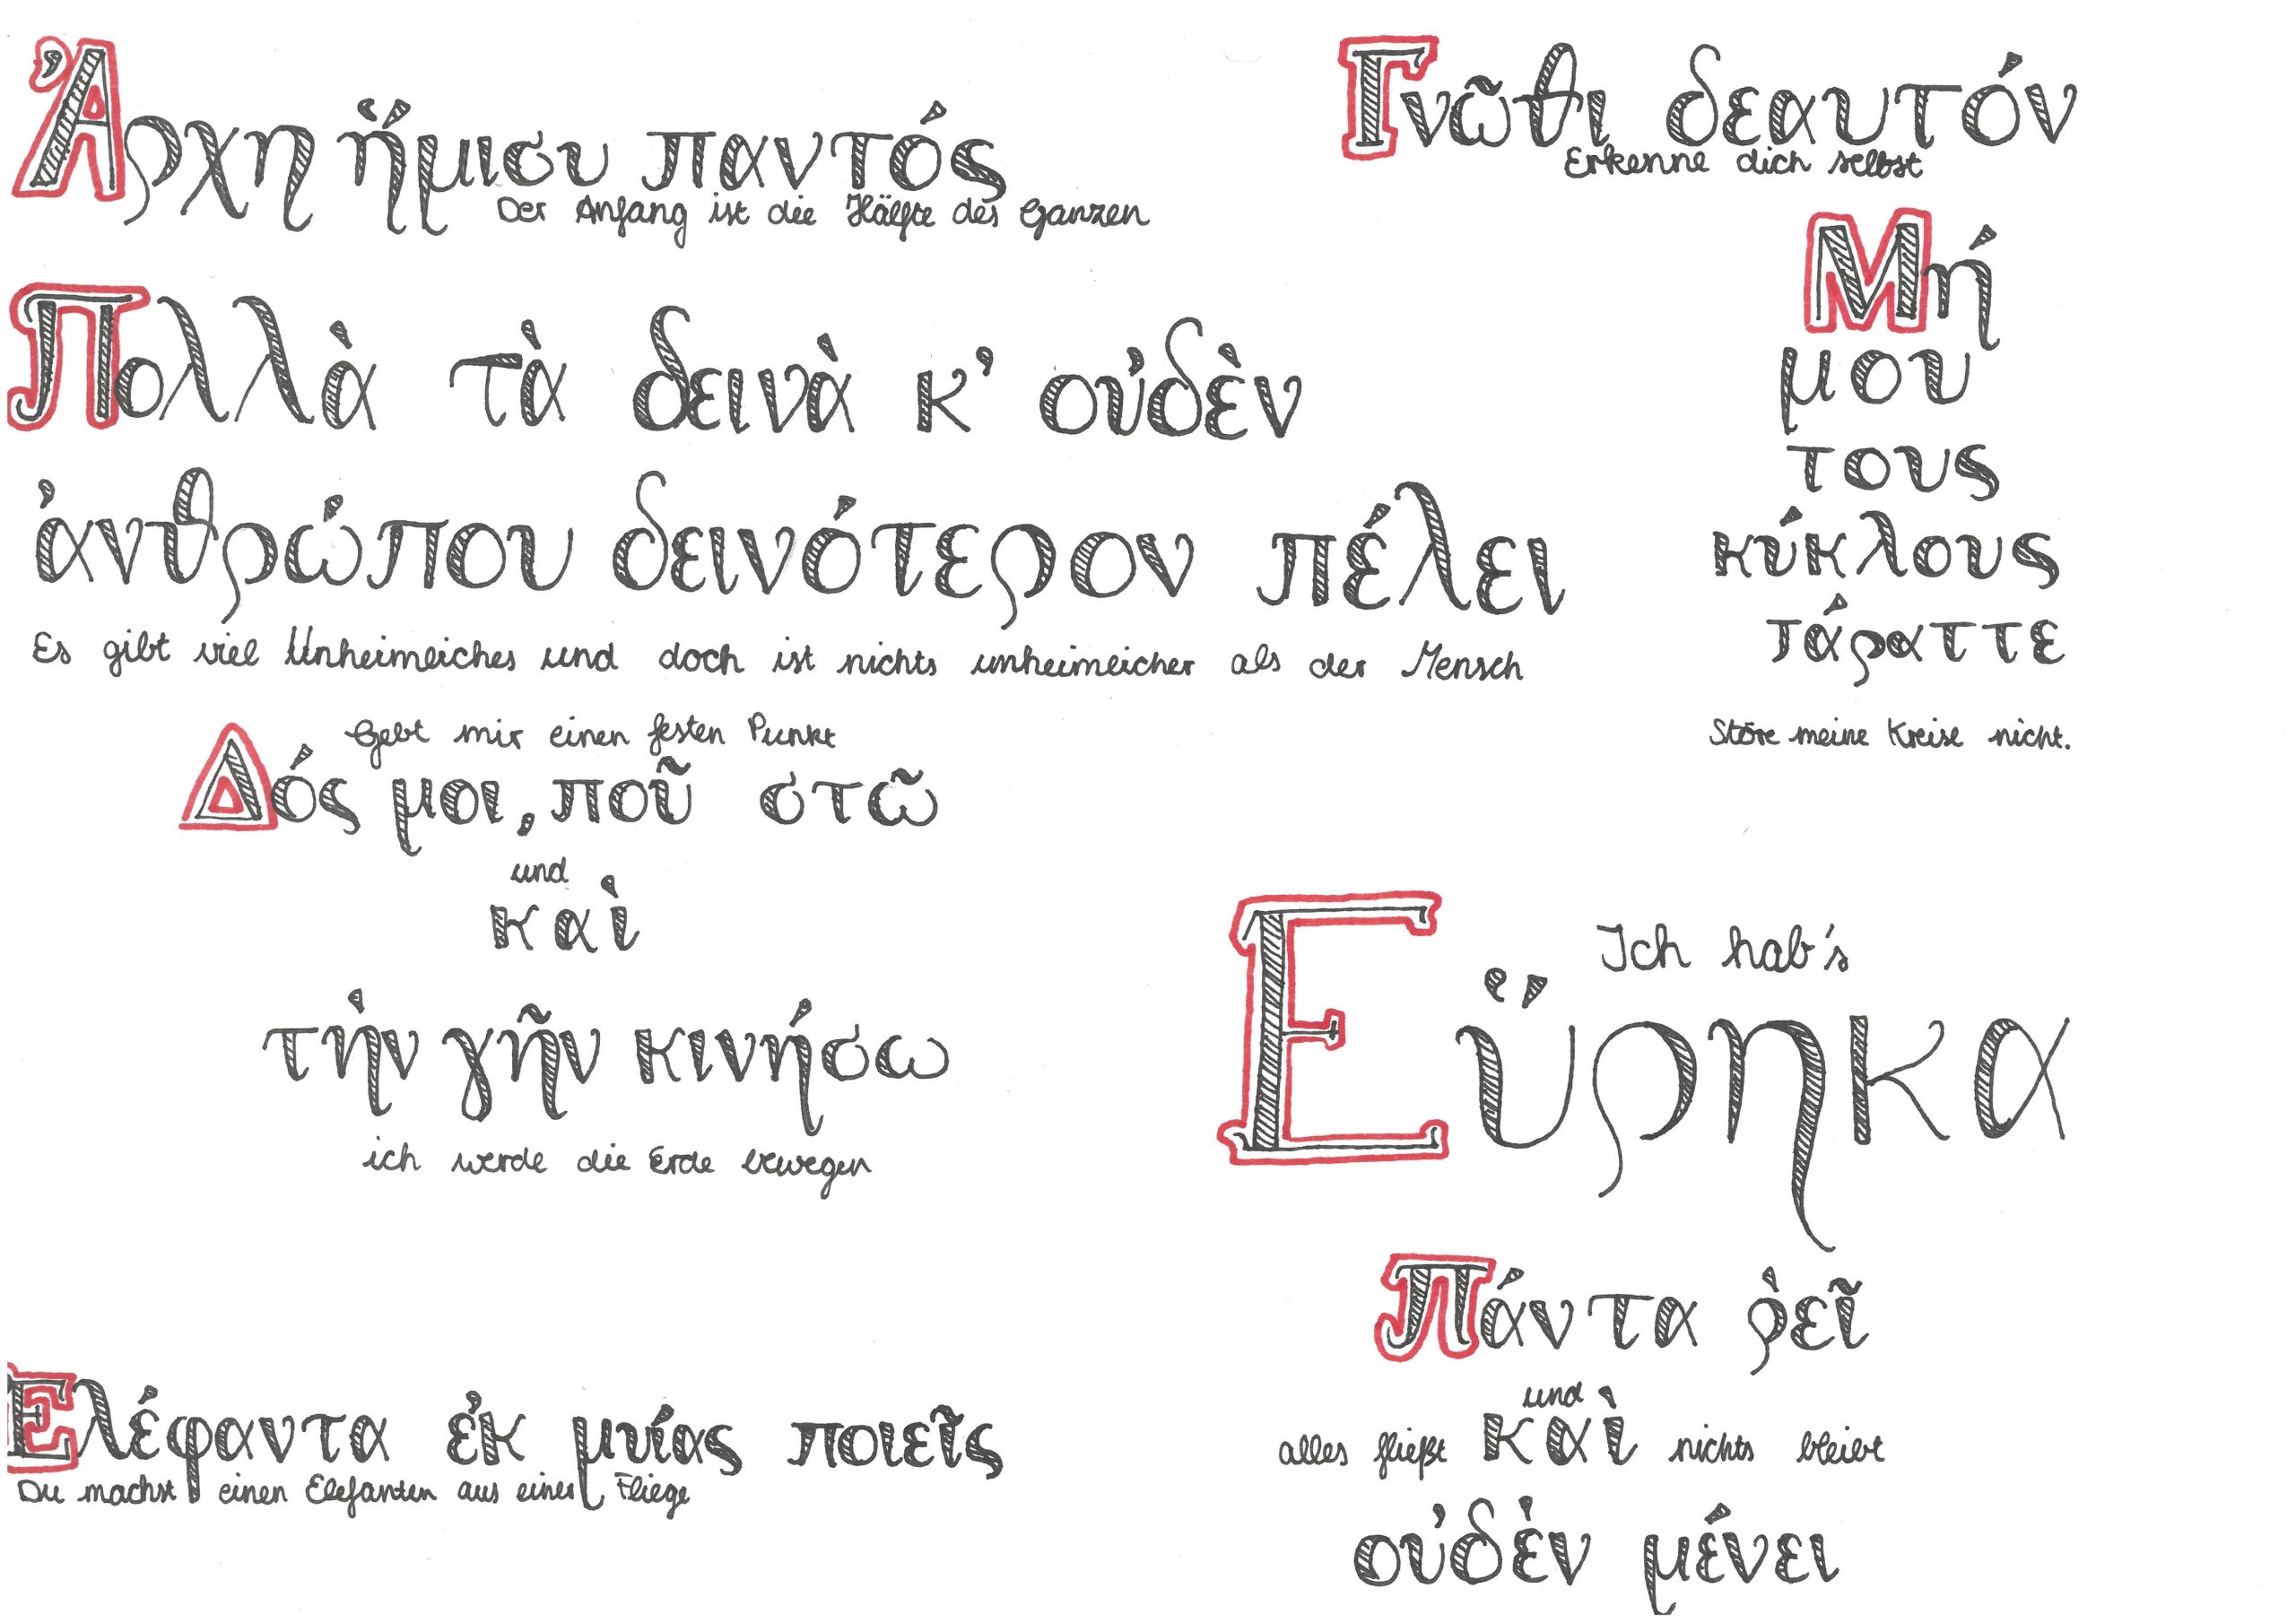 Ἀρχη ἥμισυ παντός
Der Anfang ist die Hälfte des Ganzen
Γνῶθι δεαυτόν
Erkenne dich selbst
Πολλὰ τὰ δεινὰ κ' οὐδὲν
ἀνθρώπου δεινότερον πέλει
Es gibt viel Unheimliches und doch ist nichts unheimlicher als der Mensch
Μή
μου
τους
κύκλους
τάραττε
Störe meine Kreise nicht.
Gebt mir einen festen Punkt
Δός μοι, ποῦ στῶ
und
καὶ
τὴν γῆν κινήσω
ich werde die Erde bewegen
Ich hab's
Εὕρηκα
Ελέφαντα ἐκ μυίας ποιεῖς
Du machst einen Elefanten aus einer Fliege
Πάντα ῥεῖ
und
alles fließt καὶ nichts bleibt
οὐδὲν μένει